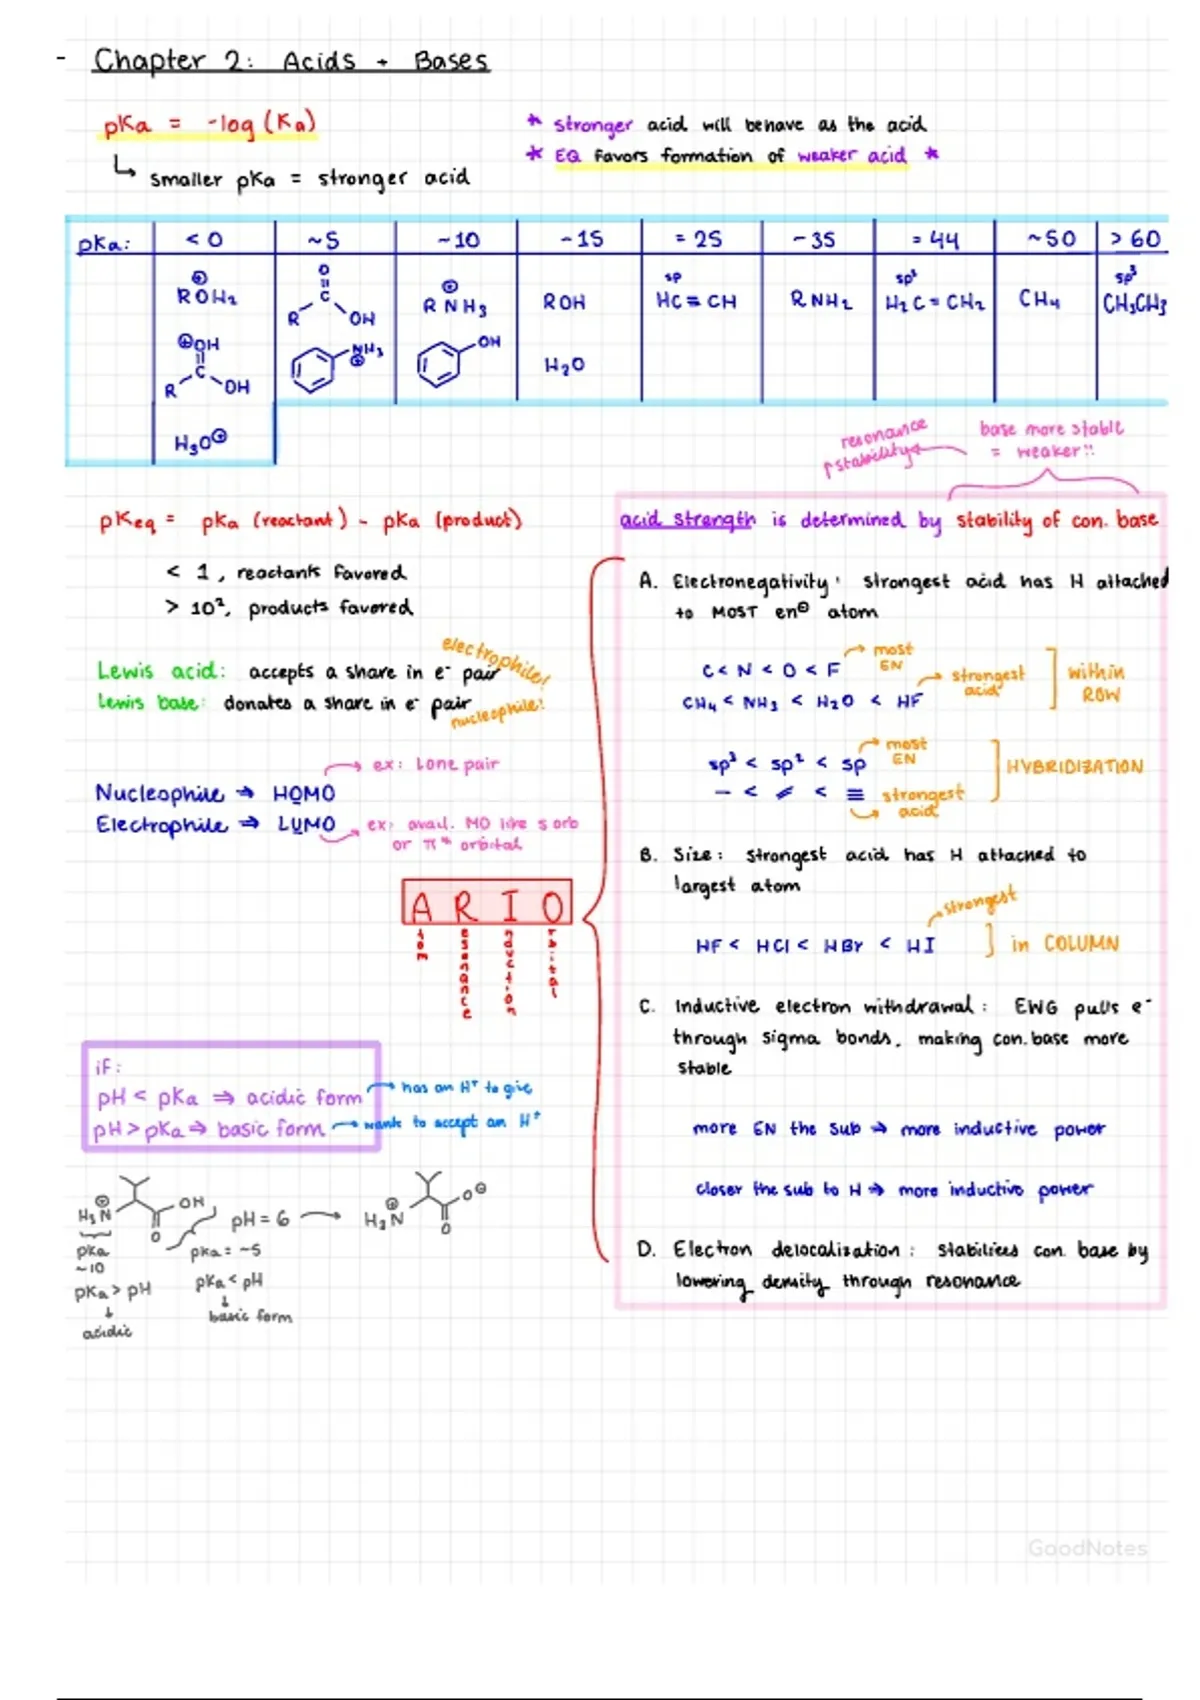 - Chapter 2: Acids + Bases
pKa = -log (Ka)
↳ smaller pKa = stronger acid
* stronger acid will behave as the acid
* EQ favors formation of weaker acid *
pKa: < 0 ~5 ~10 ~15 = 25 ~35 = 44 ~50 > 60
sp sp² sp³
R O H₂ ⊕ O || C R OH R N H₃ ⊕ ROH HC≡CH RNH₂ H₂C=CH₂ CH₄ CH₃CH₃
⊕OH || C R OH NH₃ ⊕ OH H₂O
H₃O⊕
resonance ↑stability
base more stable = weaker!!
pKeq = pKa (reactant) - pKa (product)
< 1, reactants favored
> 10², products favored
Lewis acid: accepts a share in e⁻ pair electrophile!
Lewis base: donates a share in e⁻ pair nucleophile!
Nucleophile ⇒ HOMO → ex: lone pair
Electrophile ⇒ LUMO → ex: avail. MO like s orb
or π* orbital
A R I O
Atom
Resonance
Induction
Orbital
acid strength is determined by stability of con. base
A. Electronegativity: strongest acid has H attached
to MOST en⊖ atom
C < N < O < F → most EN
CH₄ < NH₃ < H₂O < HF → strongest acid
within ROW
sp³ < sp² < sp → most EN
− < = < ≡ → strongest acid
HYBRIDIZATION
B. Size: strongest acid has H attached to
largest atom
HF < HCl < HBr < HI → strongest
in COLUMN
C. Inductive electron withdrawal: EWG pulls e⁻
through sigma bonds, making con. base more
stable
more EN the sub → more inductive power
closer the sub to H → more inductive power
D. Electron delocalization: stabilizes con. base by
lowering density through resonance
if:
pH < pKa ⇒ acidic form → has an H⁺ to give
pH > pKa ⇒ basic form → wants to accept an H⁺
H₃N⊕ OH O pH = 6 → H₃N⊕ O⊖ O
pKa ~10
pKa > pH
↓
acidic
pKa = ~5
pKa < pH
↓
basic form
GoodNotes